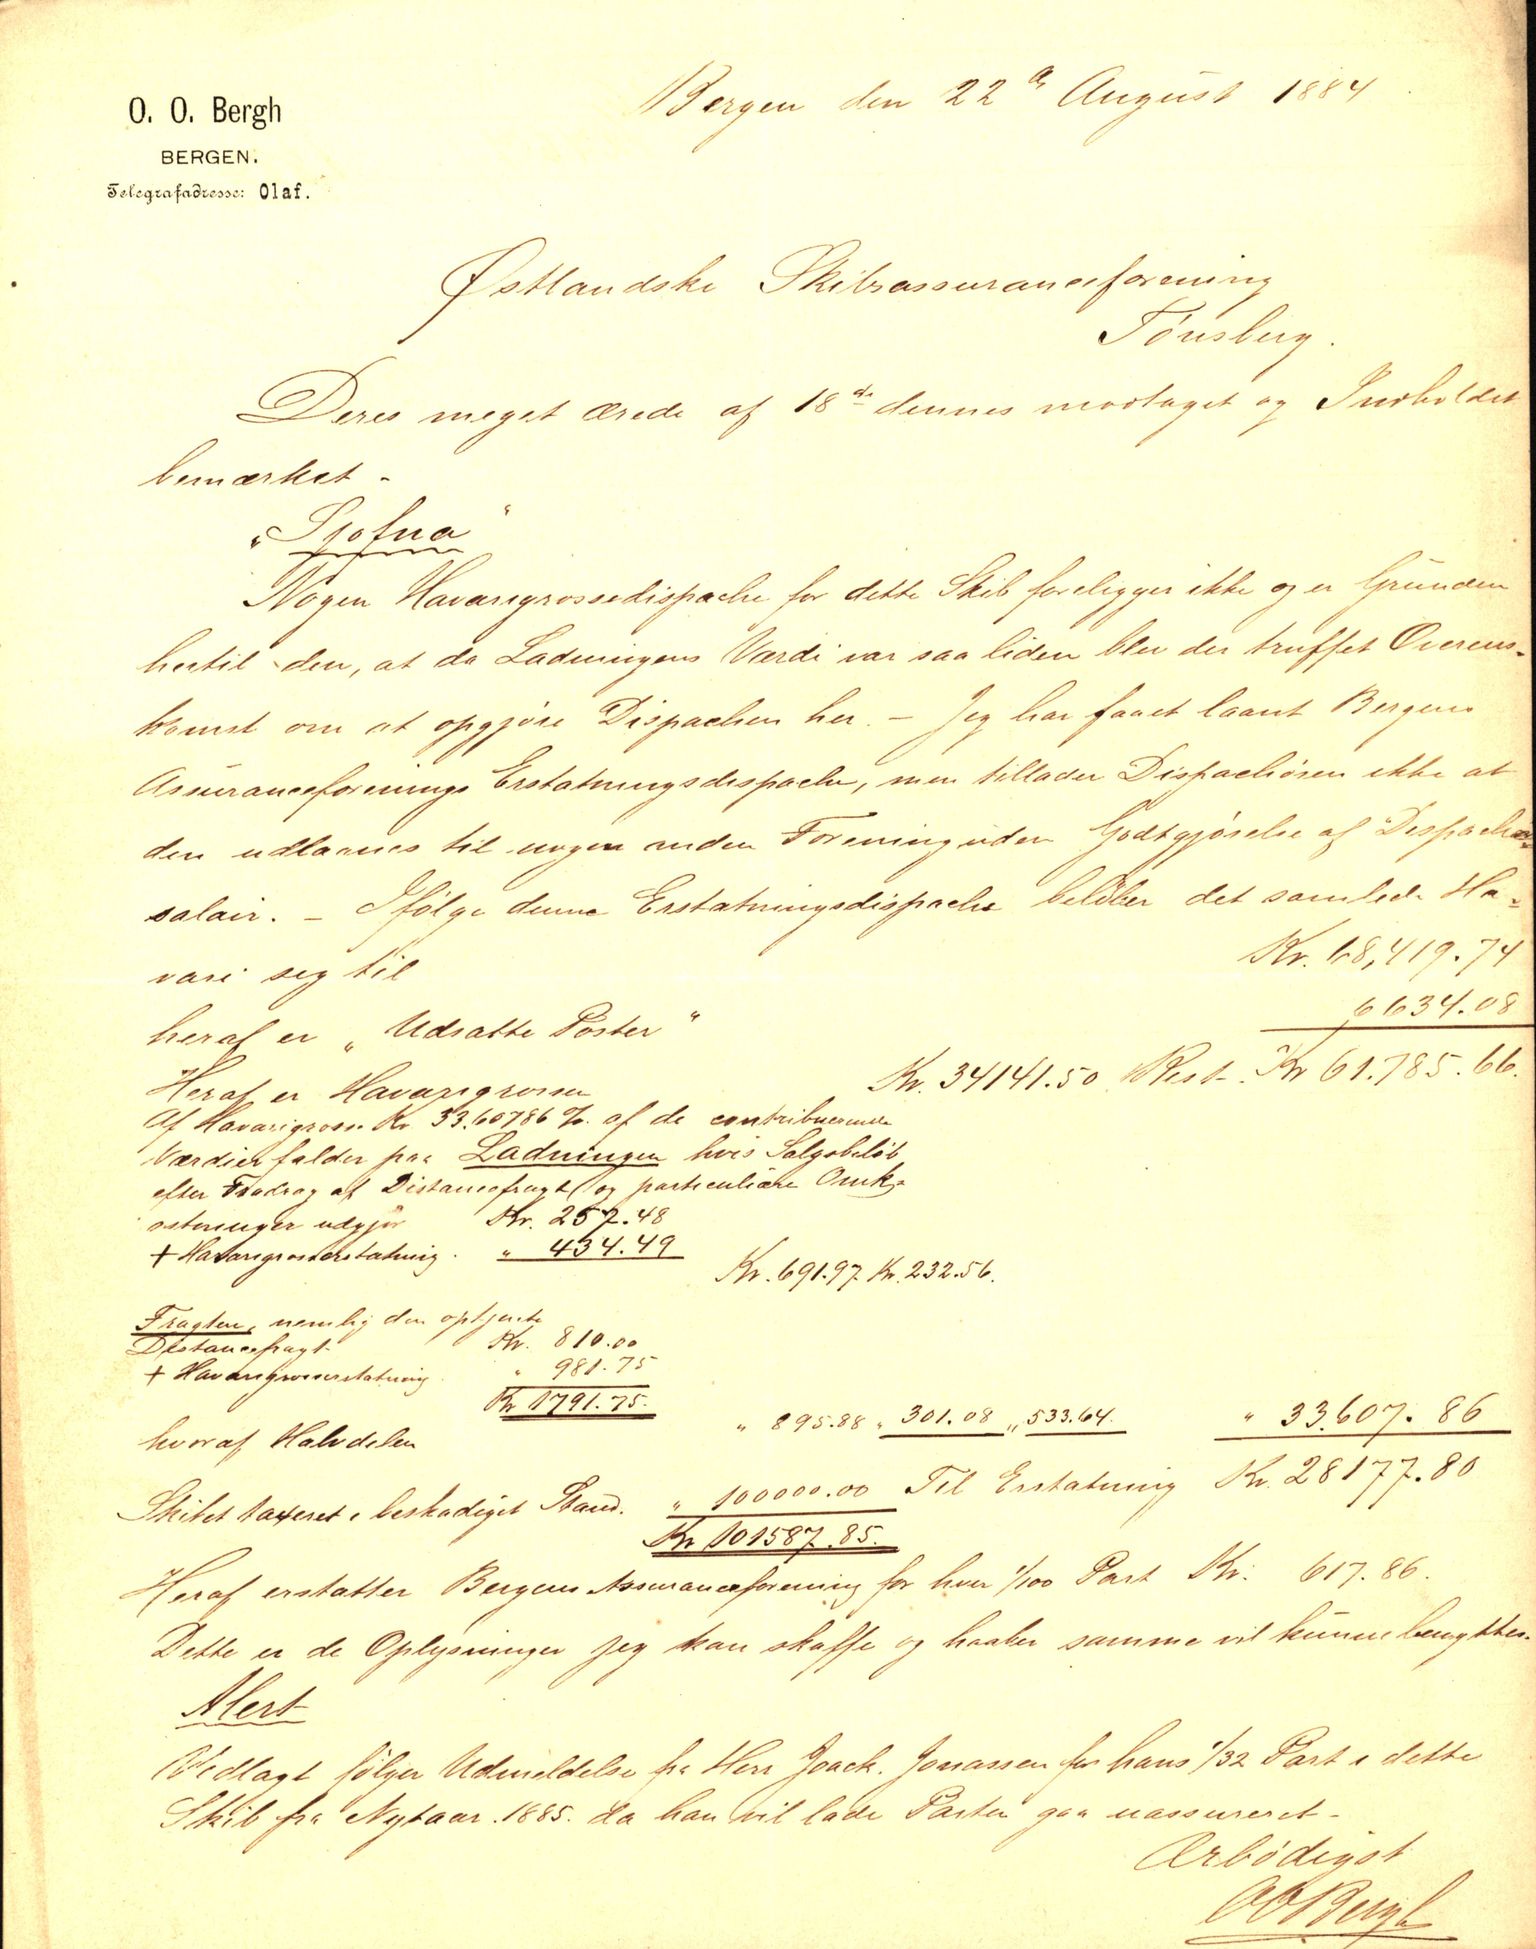 O. O. Bergh
BERGEN.
Telegrafadresse: Olaf.
Bergen den 22de August 1884
Østlandske Skibsassuranceforening
Tønsberg.
Deres meget ærede af 18de dennes modtaget og Indholdet
bemærket -
„Sjofna“
Nogen Havarigrossedispache for dette Skib foreligger ikke og er Grunden
hertil den, at da Ladningens Værdi var saa liden blev der truffet Overens-
komst om at opgjøre Dispachen her. - Jeg har faaet laant Bergens
Assuranceforenings Erstatningsdispache, men tillader Dispachøren ikke at
den udlaanes til nogen anden Forening uden Godtgjørelse af Dispache-
salair. - Ifølge denne Erstatningsdispache beløber det samlede Ha-
vari sig til Kr. 68,419.74
heraf er „Udsatte Poster“ 6634.08
Heraf er Havarigrossen Kr. 34141.50 Rest Kr 61.785.66.
Af Havarigrosse Kr 33.60786 %. af de contribuerende
Værdier falder paa Ladningen hvis Salgsbeløb
efter Fradrag af Distancefragt og particulære Omk-
ostninger udgjør Kr. 257.48
+ Havarigrosserstatning. „ 434.49
Kr. 691.97 Kr. 232.56.
Fragten, nemlig den optjente
Distancefragt Kr. 810.00
+ Havarigrosserstatning „ 981.75
Kr 1791.75.
hvoraf Halvdelen „ 895.88 „ 301.08 „ 533.64. „ 33.607.86
Skibet taxeret i beskadiget Stand. „ 100000.00 Til Erstatning Kr. 28177.80
Kr 101587.85.
Heraf erstatter Bergens Assuranceforening for hver 1/100 Part Kr. 617.86.
Dette er de Oplysninger jeg kan skaffe og haaber samme vil kunne benyttes.
Alert
Vedlagt følger Udmeldelse fra Herr Joach. Jonassen for hans 1/32 Part i dette
Skib fra Nytaar 1885. da han vil lade Parten gaa uassureret -
Ærbødigst
OO Bergh